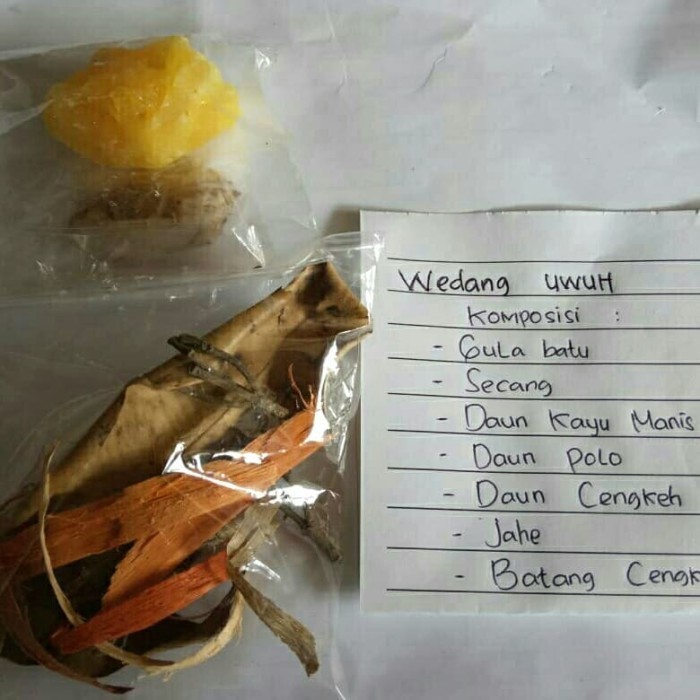 Wedang uwuH
Komposisi :
- Gula batu
- Secang
- Daun Kayu Manis
- Daun Polo
- Daun Cengkeh
- Jahe
- Batang Cengk